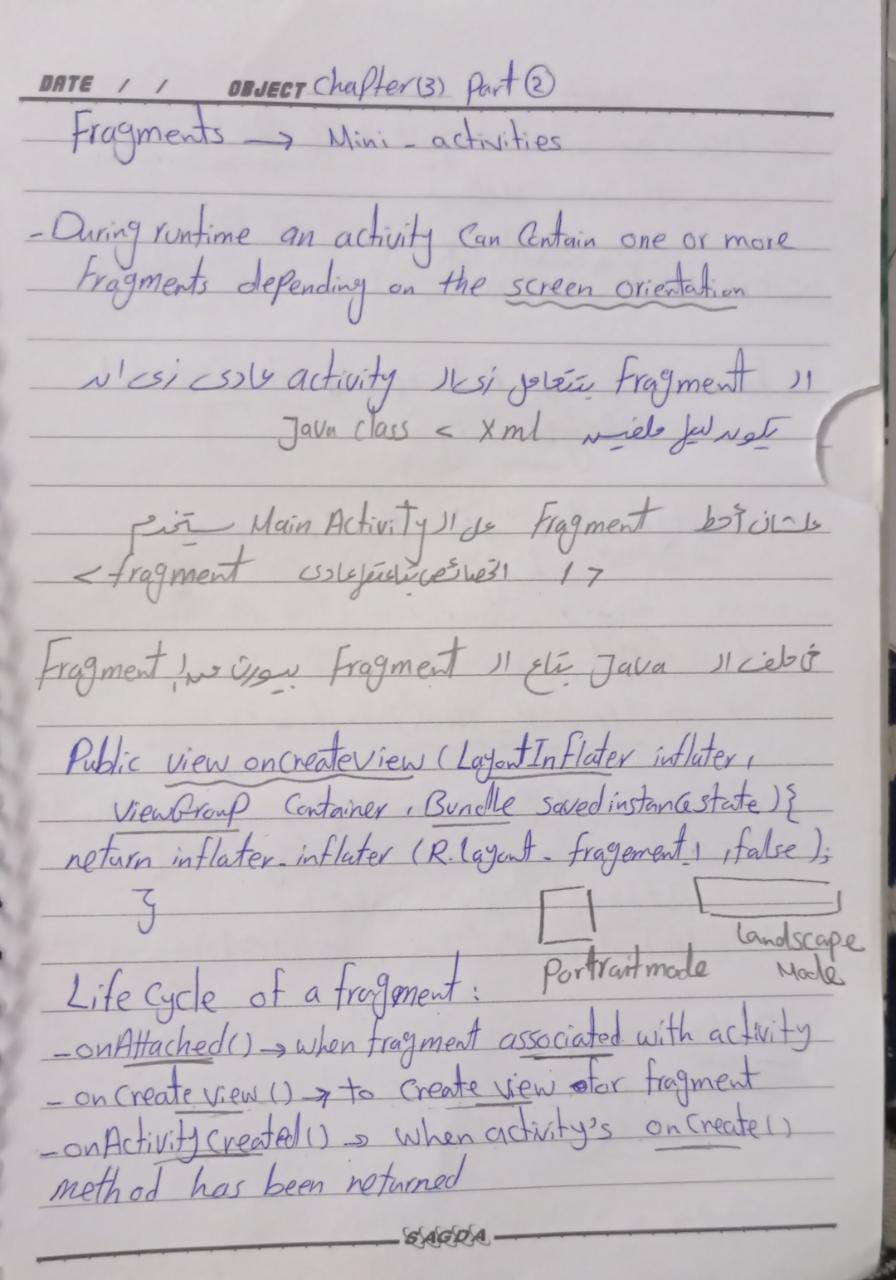 DATE / / OBJECT Chapter(3) Part ②
Fragments → Mini - activities
- During runtime an activity Can Contain one or more
Fragments depending on the screen orientation
ال Fragment بتتعامل زى ال activity عادى زى انه
يكون ليها ملفين Java class < Xml
علشان أحط Fragment على ال Main Activity بستخدم
< / الخصائص بتاعتها عادى fragment >
فى ملف ال Java بتاع ال Fragment بيورث من Fragment
Public view onCreateView (LayoutInflater inflater,
ViewGroup Container, Bundle savedinstancestate) {
return inflater.inflater (R.layout. fragement1, false);
}
Portrait mode
Landscape
Mode
Life Cycle of a fragment:
- onAttached() → when fragment associated with activity
- onCreate view () → to Create view for fragment
- onActivityCreated() → when activity's onCreate()
method has been returned
SAGDA